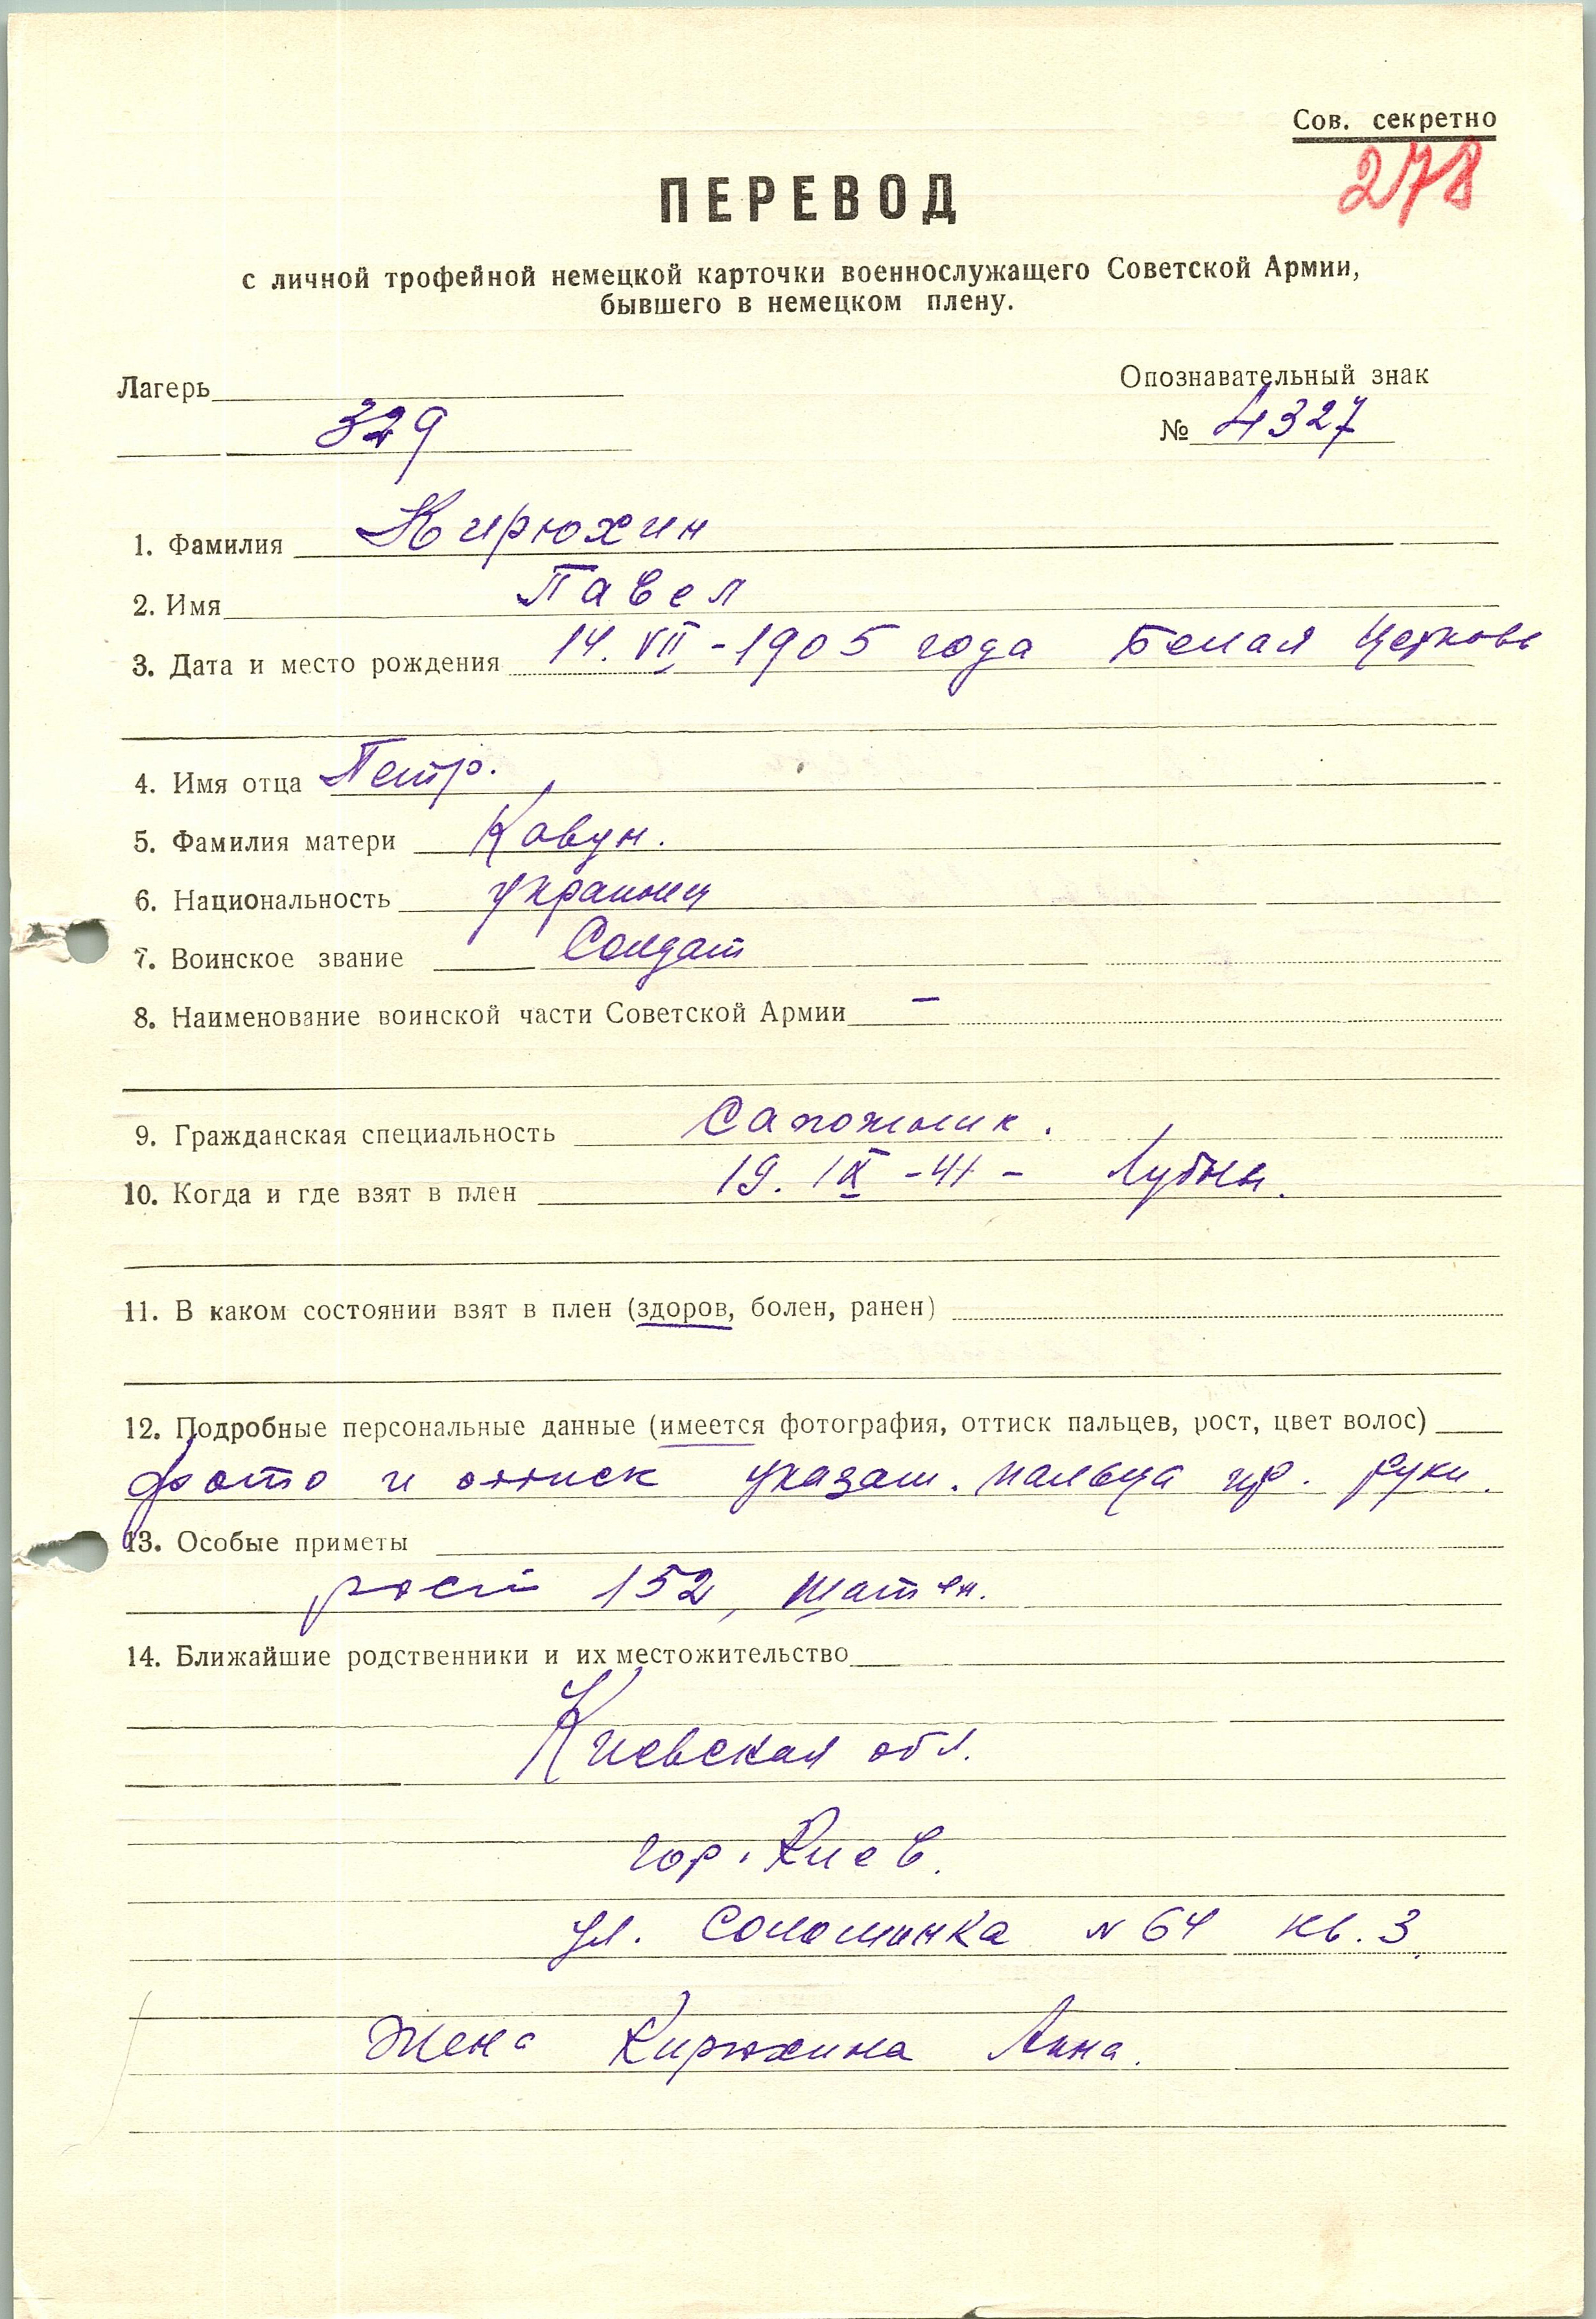 Сов. секретно
278
ПЕРЕВОД
с личной трофейной немецкой карточки военнослужащего Советской Армии,
бывшего в немецком плену.
Лагерь
Опознавательный знак
329
№ 4327
1. Фамилия Кирюхин
2. Имя Павел
3. Дата и место рождения 14. VII - 1905 года Белая Церковь
4. Имя отца Петр.
5. Фамилия матери Ковун.
6. Национальность украинец
7. Воинское звание Солдат
8. Наименование воинской части Советской Армии –
9. Гражданская специальность Сапожник.
10. Когда и где взят в плен 19. IX - 41 - Лубны.
11. В каком состоянии взят в плен (здоров, болен, ранен)
12. Подробные персональные данные (имеется фотография, оттиск пальцев, рост, цвет волос)
фото и оттиск указат. пальца пр. руки.
13. Особые приметы
рост 152, шатен.
14. Ближайшие родственники и их местожительство
Киевская обл.
гор. Киев.
ул. Соломинка N 64 кв. 3.
Жена Кирюхина Анна.